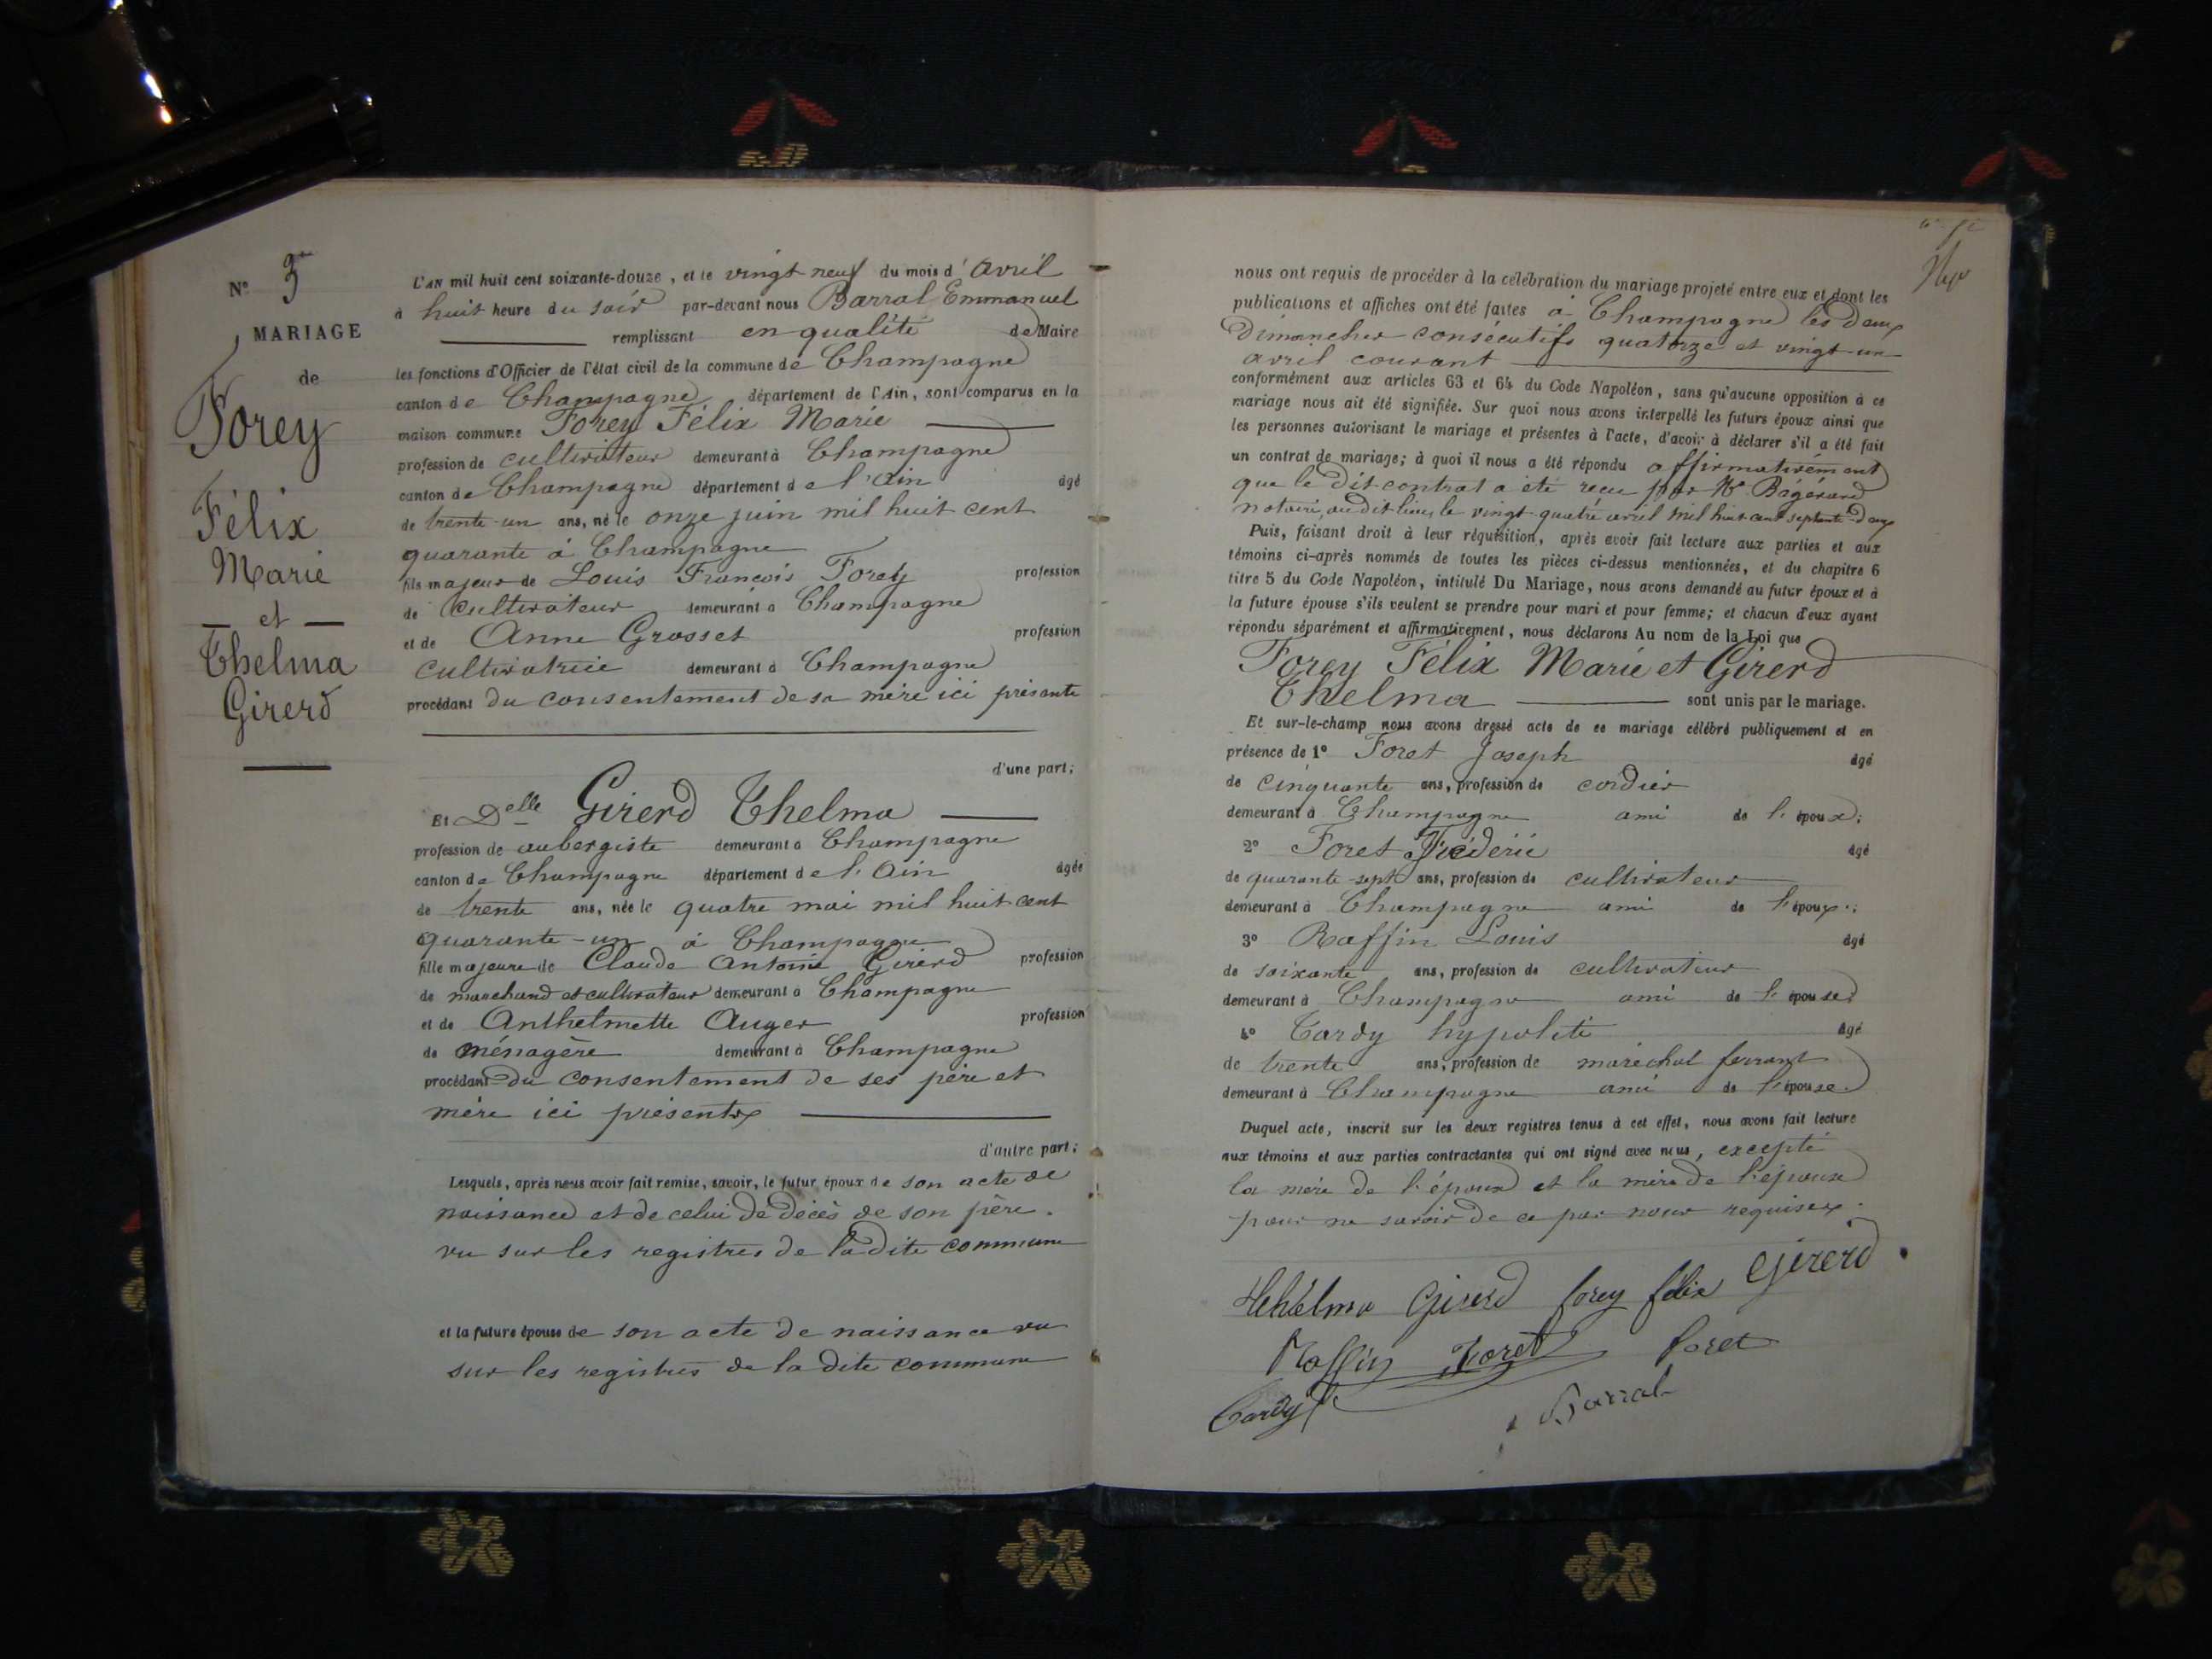 N° 3
MARIAGE
de
Forey
Félix
Marie
et
Thelma
Girerd
L'AN mil huit cent soixante-douze, et le vingt neuf du mois d'Avril
à huit heure du soir par-devant nous Barral Emmanuel
remplissant en qualité de Maire
les fonctions d'Officier de l'état civil de la commune de Champagne
canton de Champagne département de l'Ain, sont comparus en la
maison commune Forey Félix Marie
profession de cultivateur demeurant à Champagne
canton de Champagne département de l'Ain âgé
de trente-un ans, né le onze juin mil huit cent
quarante à Champagne
fils majeur de Louis François Forey profession
de Cultivateur demeurant à Champagne
et de Anne Grosset profession
Cultivatrice demeurant à Champagne
procédant du consentement de sa mère ici présente
d'une part;
Et Delle Girerd Thelma
profession de aubergiste demeurant à Champagne
canton de Champagne département de l'Ain âgée
de trente ans, née le quatre mai mil huit cent
quarante-un à Champagne
fille majeure de Claude Antoine Girerd profession
de marchand et cultivateur demeurant à Champagne
et de Anthelmette Auger profession
de ménagère demeurant à Champagne
procédant du consentement de ses père et
mère ici présents
d'autre part;
Lesquels, après nous avoir fait remise, savoir, le futur époux de son acte de
naissance et de celui de décès de son père.
vu sur les registres de la dite commune
et la future épouse de son acte de naissance vu
sur les registres de la dite commune
nous ont requis de procéder à la célébration du mariage projeté entre eux et dont les
publications et affiches ont été faites à Champagne les deux
Dimanches consécutifs quatorze et vingt-un
avril courant
conformément aux articles 63 et 64 du Code Napoléon, sans qu'aucune opposition à ce
mariage nous ait été signifiée. Sur quoi nous avons interpellé les futurs époux ainsi que
les personnes autorisant le mariage et présentes à l'acte, d'avoir à déclarer s'il a été fait
un contrat de mariage; à quoi il nous a été répondu affirmativement
que le dit contrat a été reçu par Me
notaire, au dit lieu, le vingt-quatre avril mil huit cent septante-deux
Puis, faisant droit à leur réquisition, après avoir fait lecture aux parties et aux
témoins ci-après nommés de toutes les pièces ci-dessus mentionnées, et du chapitre 6
titre 5 du Code Napoléon, intitulé Du Mariage, nous avons demandé au futur époux et à
la future épouse s'ils veulent se prendre pour mari et pour femme; et chacun d'eux ayant
répondu séparément et affirmativement, nous déclarons Au nom de la Loi que
Forey Félix Marie et Girerd
Thelma sont unis par le mariage.
Et sur-le-champ nous avons dressé acte de ce mariage célébré publiquement et en
présence de 1° Foret Joseph âgé
de Cinquante ans, profession de cordier
demeurant à Champagne ami de l'époux;
2° Foret Frédéric âgé
de quarante-sept ans, profession de cultivateur
demeurant à Champagne ami de l'époux;
3° Raffin Louis âgé
de soixante ans, profession de cultivateur
demeurant à Champagne ami de l'épouse
4° Tardy hypolite âgé
de trente ans, profession de maréchal ferrant
demeurant à Champagne ami de l'épouse
Duquel acte, inscrit sur les deux registres tenus à cet effet, nous avons fait lecture
aux témoins et aux parties contractantes qui ont signé avec nous, excepté
la mère de l'époux et la mère de l'épouse
pour ne savoir de ce par nous requises.
Girerd forey félix Girerd
Raffin Foret foret
Tardy Barral